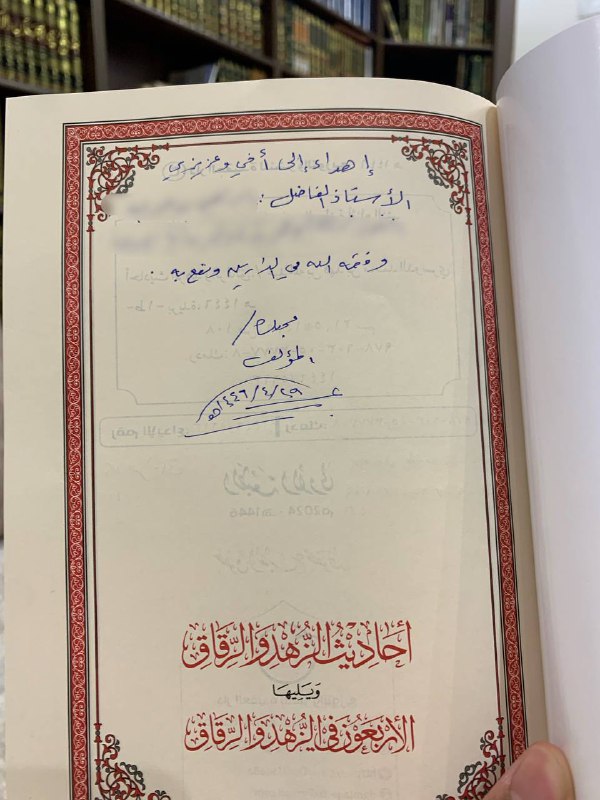 إهداء إلى أخي وعزيزي
الأستاذ الفاضل:
وفقه الله في الدارين ونفع به
محبك/
المؤلف
٢٩/٤/١٤٤٦هـ
أحاديث الزهد والرقاق
ويليها
الأربعون في الزهد والرقاق